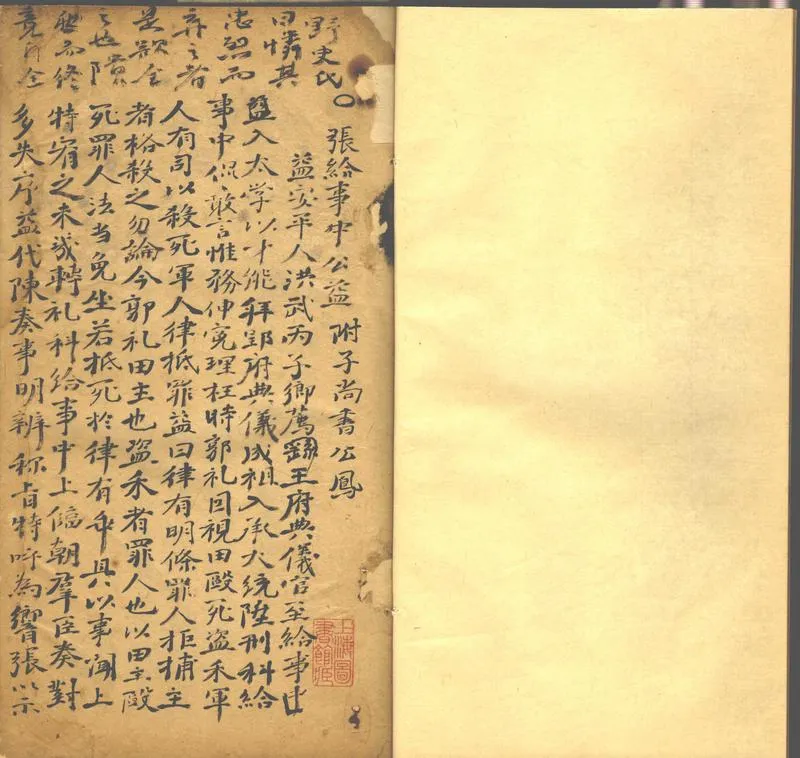 野史氏
曰憐其
忠烈而
弃之者
是欲全
之也
而終
竟所全
○張給事中公益 附子尚書公鳳
益安平人洪武丙子鄉薦王府典儀官至給事中
益入太学以才能拜郢府典儀成祖入承大統陞刑科給
事中侃〻敢言惟務伸寃理枉時郭礼因視田毆死盜禾軍
人有司以殺死軍人律抵罪益曰律有明條罪人拒捕主
者格殺之勿論今郭礼田主也盜禾者罪人也以田主毆
死罪人法当免坐若抵死於律有乖具以事闻上
特宥之未幾轉礼科給事中上臨朝羣臣奏對
多失序益代陳奏事明辨称旨特呼為響張以示
上海圖
書館藏